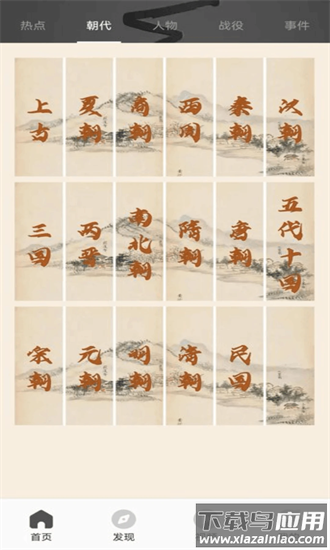 热点 朝代 人物 战役 事件
上古 夏朝 商朝 西周 秦朝 汉朝
三国 两晋 南北朝 隋朝 唐朝 五代十国
宋朝 元朝 明朝 清朝 民国
首页 发现
下载鸟应用
www.xiazainiao.com